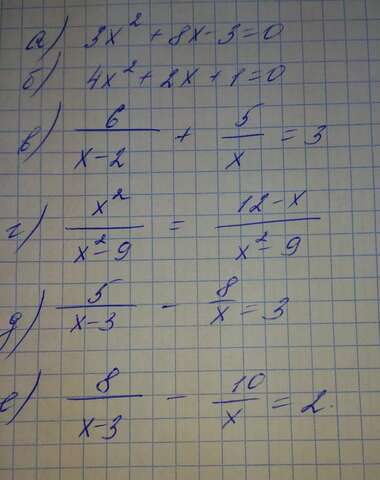 а) 3x² + 8x - 3 = 0
б) 4x² + 2x + 1 = 0
в) 6/(x-2) + 5/x = 3
г) x²/(x²-9) = (12-x)/(x²-9)
д) 5/(x-3) - 8/x = 3
е) 8/(x-3) - 10/x = 2.